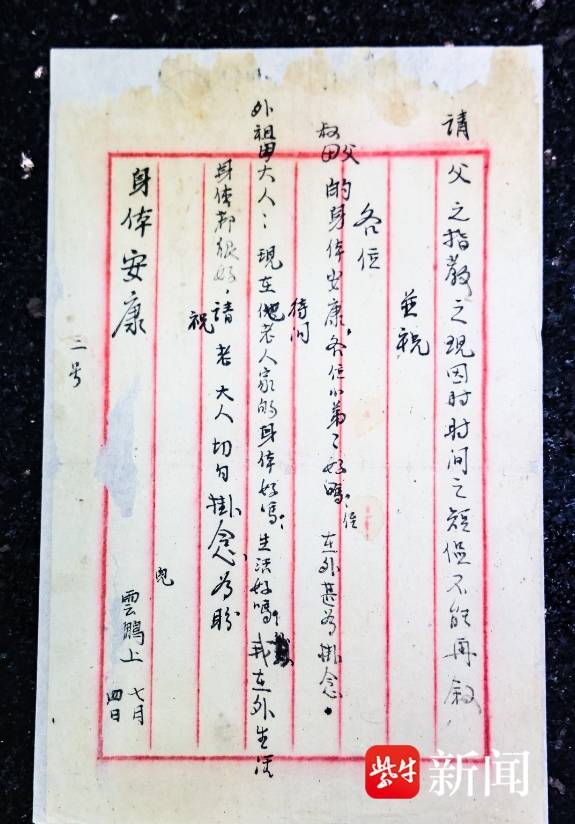 请父之指教之现因时时间之短促不能再叙,
並祝
各位
叔父母的身体安康。各位小弟々好嗎,在外甚為掛念。
待问
外祖母大人:現在他老人家的身体好嗎,生活好嗎,我在外生活
身体都很好,请老大人切勿掛念為盼
祝
身体安康
兒
雲鵬上 七月
四日
二号
紫牛新闻